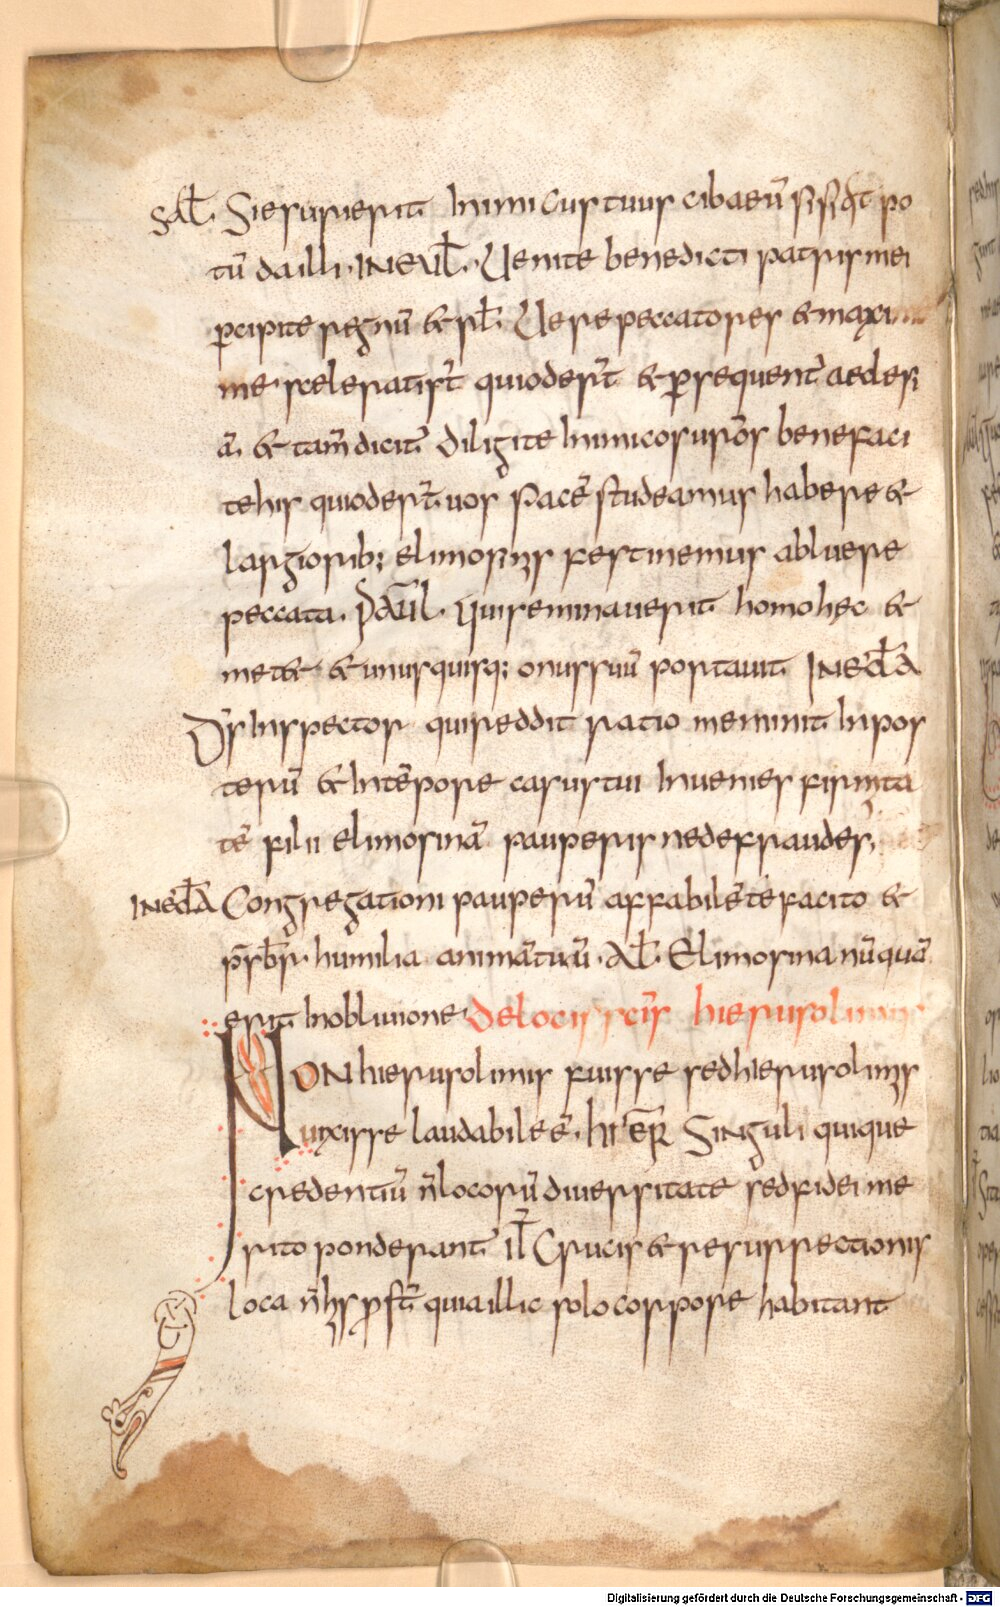 sal̄. Si esurierit inimicus tuus ciba eū si sitit po
tū da illi. IN EUl̄. Uenite benedicti patris mei
p̲cipite regnū & rl̄. Uere peccatores & maxi
me sceleratis̄t qui oder̄t & p̲sequent̄ aecles
ā. & tam̄ dicit̄ diligite inimicos ur̄os benefaci
te his qui oder̄t uos pacē studeamus habere &
largiorib; elimosinis festinemus abluere
peccata. PAul̄. Qui seminauerit homo hęc &
met& & unusquisq; onus suū portauit IN ECl̄A
D̄s inspector qui reddit ratio meminit in pos
terū & in tēpore casus tui inuenies firmita
tē fili elimosinā pauperis ne defraudes,
IN ECl̄A Congregationi pauperū affabilē te facito &
p̄sb̄r humilia animā tuā. Al̄. Elimosina nūquā
erit in obliuione De locis sc̄is hierusolimis
NON hierusolimis fuisse sed hierusolimis
uixisse laudabile ē. hiēR Singuli quique
credentiū n̄ locorū diuersitate sed fidei me
rito ponderant̄ Il̄ Crucis & resurrectionis
loca n̄ his p̲s̄t qui aillic solo corpore habitant
Digitalisierung gefördert durch die Deutsche Forschungsgemeinschaft - DFG